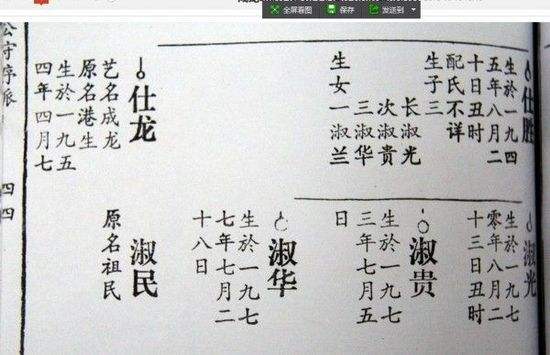 全屏看图
保存
发送到
仕胜
生於一九四
五年八月二
十日丑时
配氏不详
生子三
长淑光
次淑贵
三淑华
生女一淑兰
仕龙
艺名成龙
原名港生
生於一九五
四年四月七
淑光
生於一九七
零年八月二
十三日丑时
淑贵
生於一九七
三年七月五
日
淑华
生於一九七
七年七月二
十八日
淑民
原名祖民
公守序派
四四